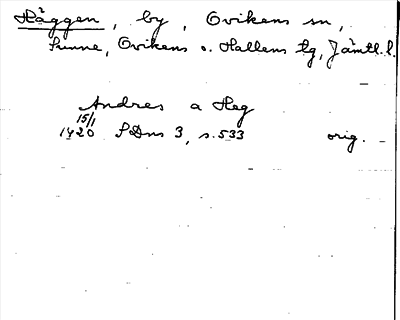 Häggen, by, Ovikens sn,
Sunne, Ovikens o. Hallens tg, Jämtl. l.
Andres a Heg
15/1
1420 SDns 3, s. 533 orig.